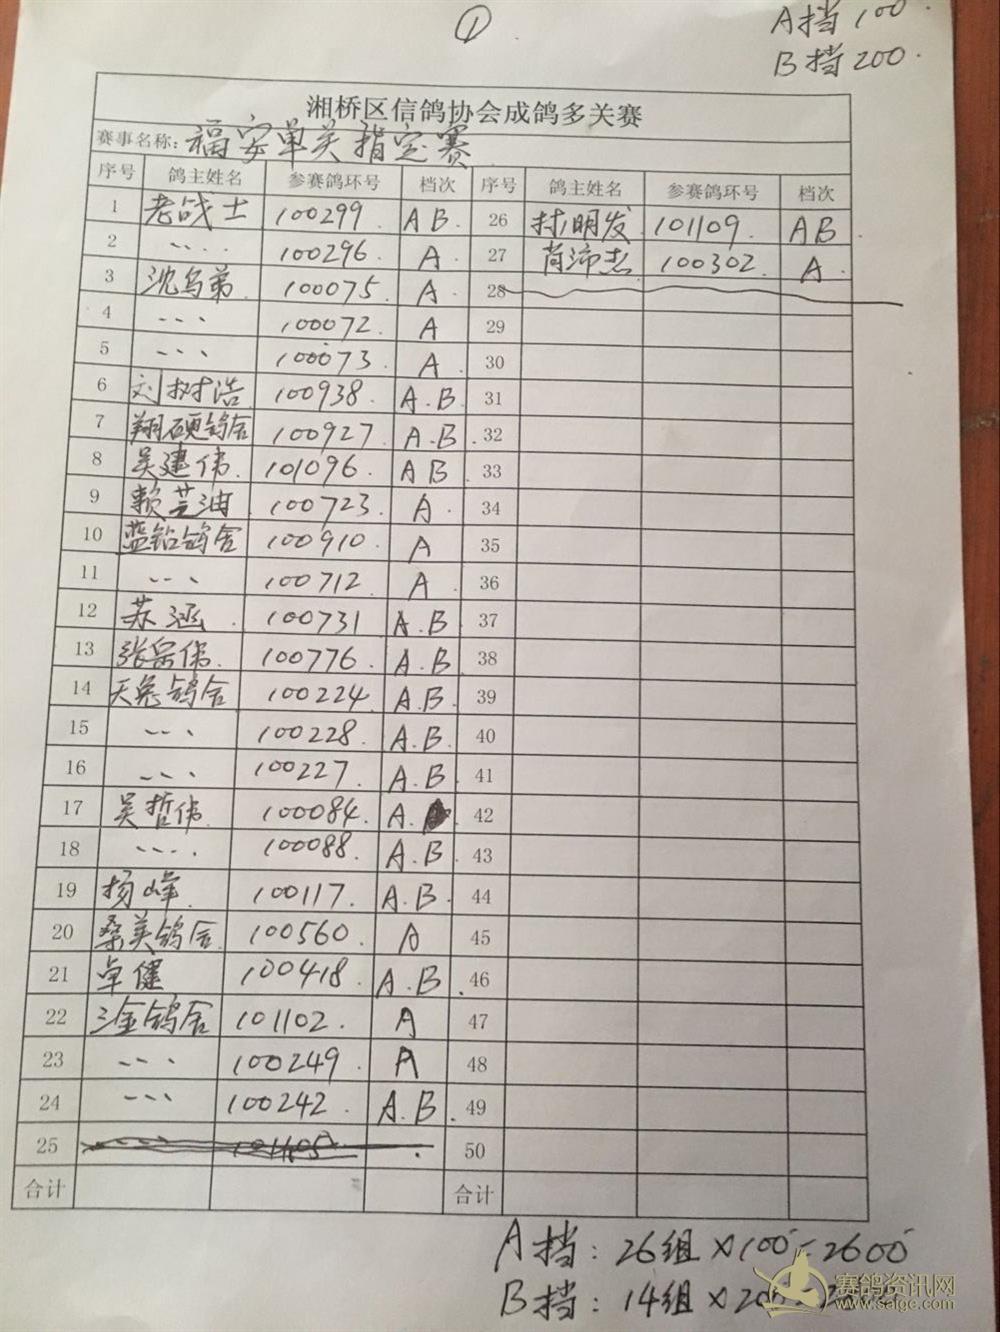 ①
A挡100.
B挡200.
湘桥区信鸽协会成鸽多关赛
赛事名称: 福安单关指定赛
序号 鸽主姓名 参赛鸽环号 档次 序号 鸽主姓名 参赛鸽环号 档次
1 老战士 100299 AB. 26 村明发 101109. AB
2 〃 100296. A. 27 肖沛杰 100302. A.
3 沈乌弟 100075. A. 28
4 〃 100072. A 29
5 〃 100073. A. 30
6 刘树浩 100938. A.B. 31
7 翔硕鸽舍 100927. A.B. 32
8 吴建伟. 101096. AB. 33
9 赖芝油 100723. A. 34
10 蓝钻鸽舍 100910. A 35
11 〃 100712. A 36
12 苏涵. 100731 A.B. 37
13 张岳伟. 100776. A.B 38
14 天兔鸽舍 100224. A.B. 39
15 〃 100228. A.B. 40
16 〃 100227. A.B. 41
17 吴哲伟. 100084. A. 42
18 〃 100088. A.B. 43
19 扬峰. 100117. A.B. 44
20 桑美鸽舍. 100560. A 45
21 卓健 100418. A.B. 46
22 三金鸽舍 101102. A 47
23 〃 100249. A 48
24 〃 100242. A.B. 49
25 101105 50
合计 合计
A挡: 26组×100=2600
B挡: 14组×200=2800
赛鸽资讯网
www.saige.com